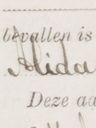 bevallen is
Alida
Deze aa